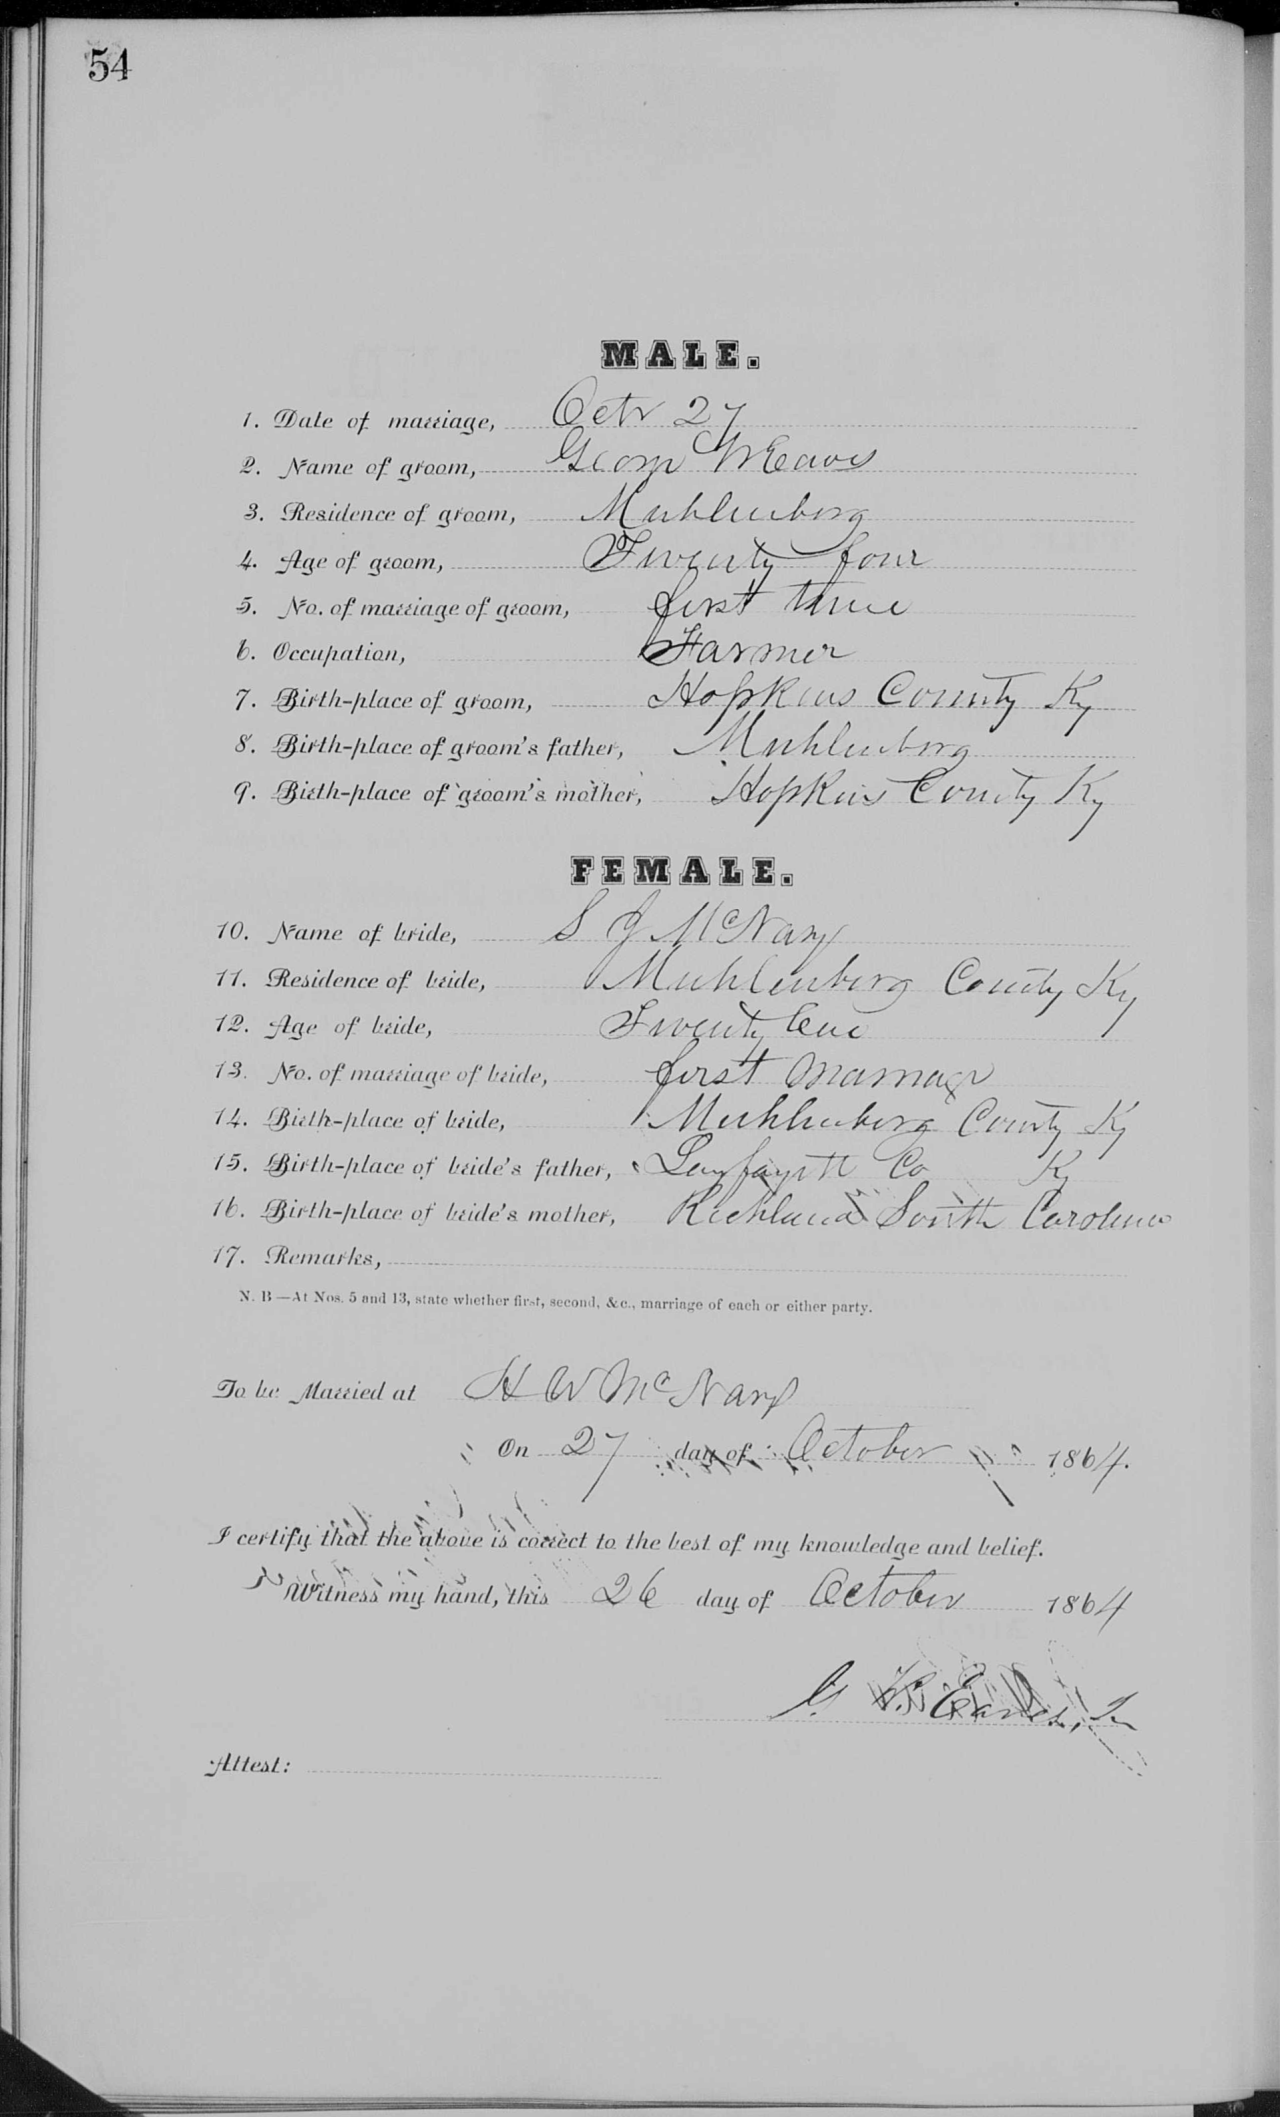 54
MALE.
1. Date of marriage, Octr 27
2. Name of groom, George W Eaves
3. Residence of groom, Muhlenberg
4. Age of groom, Twenty four
5. No. of marriage of groom, first time
6. Occupation, Farmer
7. Birth-place of groom, Hopkins County Ky
8. Birth-place of groom's father, Muhlenberg
9. Birth-place of groom's mother, Hopkins County Ky
FEMALE.
10. Name of bride, S J McNary
11. Residence of bride, Muhlenberg County Ky
12. Age of bride, Twenty One
13. No. of marriage of bride, first Marriage
14. Birth-place of bride, Muhlenberg County Ky
15. Birth-place of bride's father, Layfayett Co Ky
16. Birth-place of bride's mother, Richland South Carolina
17. Remarks,
N. B—At Nos. 5 and 13, state whether first, second, &c., marriage of each or either party.
To be Married at H W McNary
On 27 day of October 1864.
I certify that the above is correct to the best of my knowledge and belief.
Witness my hand, this 26 day of October 1864
G. W. Eaves,
Attest: